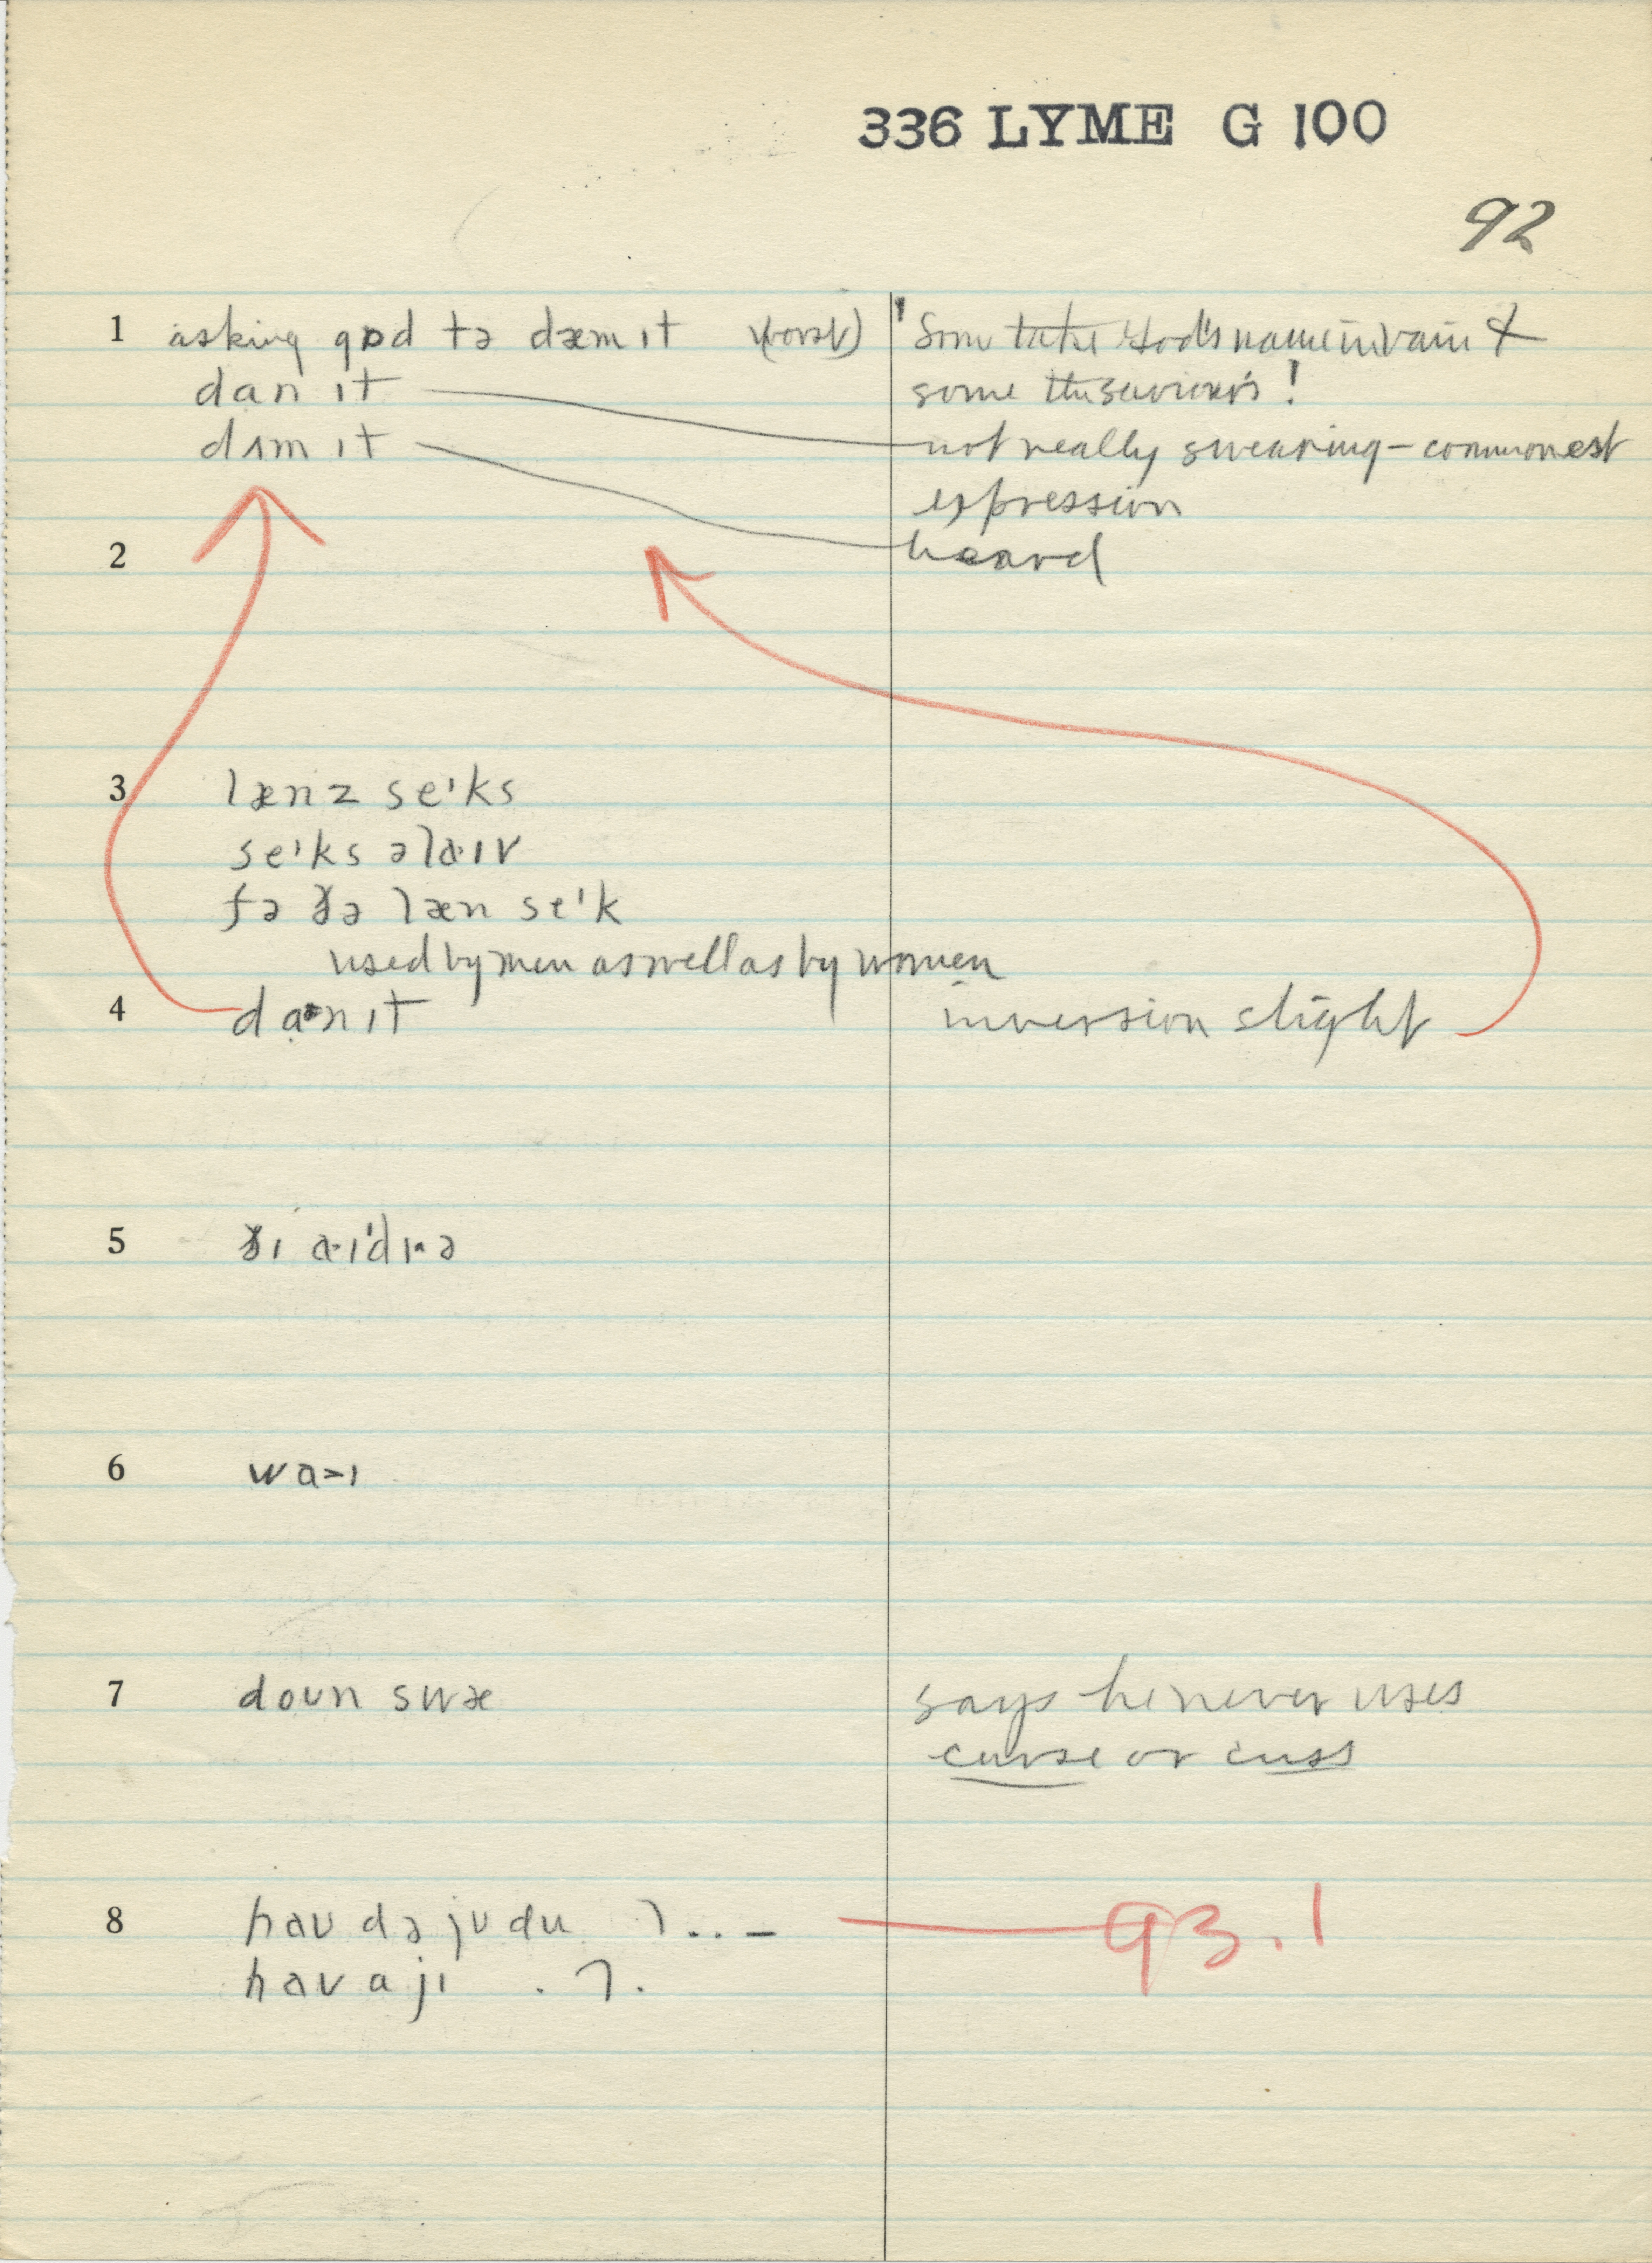 336 LYME G 100
92
1 asking gɒd tə dæm ɪt (worst) ' Some take God's name in vain &
dan ɪt some the saviour's !
dʌm ɪt not really swearing – commonest
expression
2 heard
3 lænz seᶦks
seᶦks əlaˑɪv
fə ðə læn seᶦk
used by men as well as by women
4 daˑnɪt inversion slight
5 ðɪ aˑɪˈdɪˑə
6 wa>ɪ
7 doʊn swæ says he never uses
curse or cuss
8 haʊ də jʊ du 93.1
haʊ a jɪ